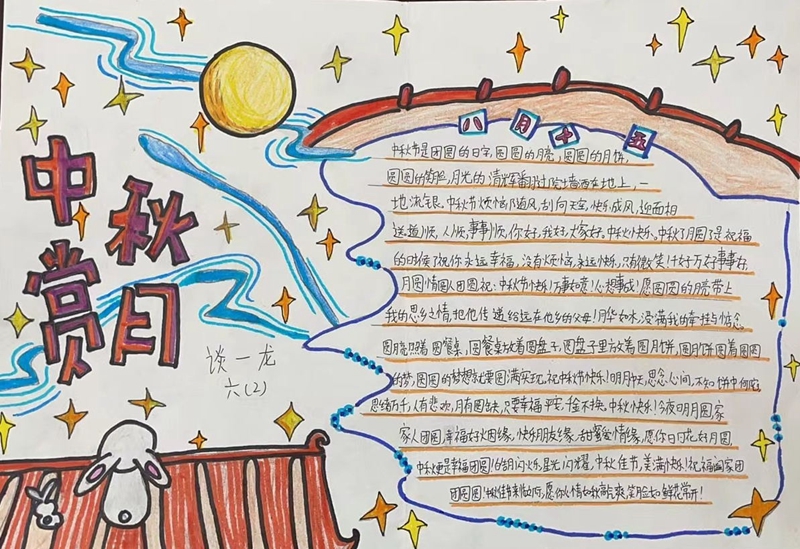 中秋
赏月
谈一龙
六(2)
八月十五
中秋节是团圆的日子,圆圆的月亮,圆圆的月饼,
圆圆的笑脸,月光的清辉翻过院墙洒在地上,一
地流银。中秋节烦恼随风,刮向天空,快乐成风,迎面相
送,道顺,人顺,事事顺,你好,我好,大家好。中秋快乐。中秋了月圆了是祝福
的时候了祝你永远幸福,没有烦恼,永远快乐,只有微笑!十好万好事事好,
月圆情圆人团圆祝:中秋节快乐!万事如意!心想事成!愿圆圆的月亮带上
我的思乡之情,把他传递给远在他乡的父母!月华如水,浸满我的牵挂与惦念
圆月亮照着圆餐桌,圆餐桌放着圆盘子,圆盘子里放着圆月饼,圆月饼圆着圆圆
的梦,圆圆的梦想就要圆满实现,祝中秋节快乐!明月中天,思念心间,不知饼中何馅,
思绪万千,人有悲欢,月有圆缺,只要幸福平安,千金不换。中秋快乐!今夜明月圆,家
家人团圆,幸福好姻缘,快乐朋友缘,甜蜜爱情缘,愿你日日花好月圆,
中秋更是幸福团圆!灯火乐,星光闪耀,中秋佳节,美满快乐!祝福阖家团
团圆圆!中秋佳节来临之际,愿你心情如秋高气爽,笑脸如鲜花常开!